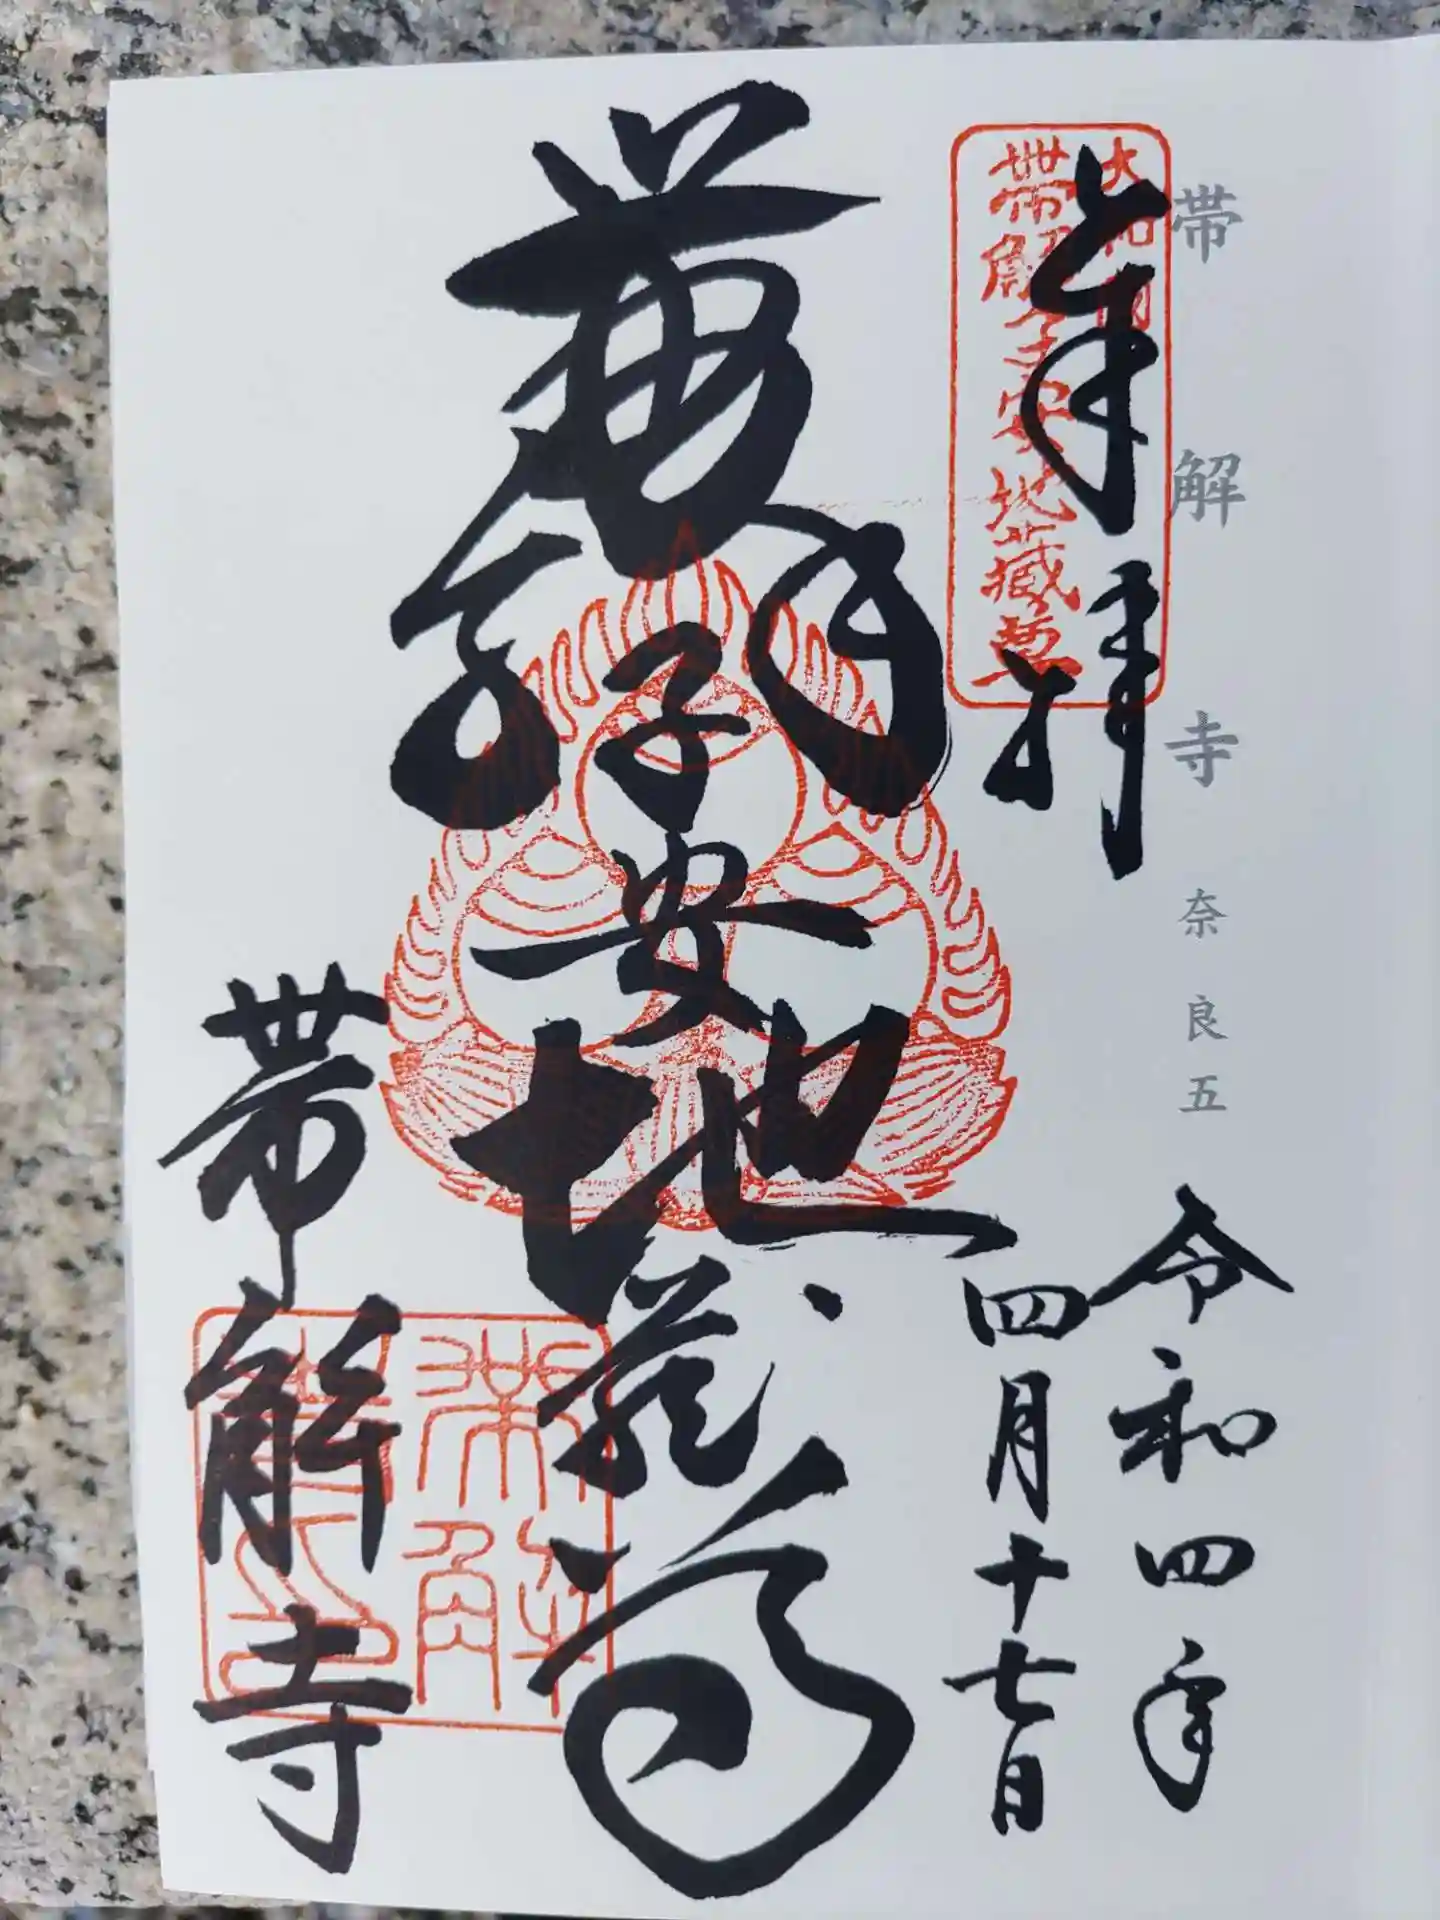 帯解寺 奈良五
奉拝
大和国
帯解子安地蔵尊
令和四年
四月十七日
子安地蔵尊
帯解寺